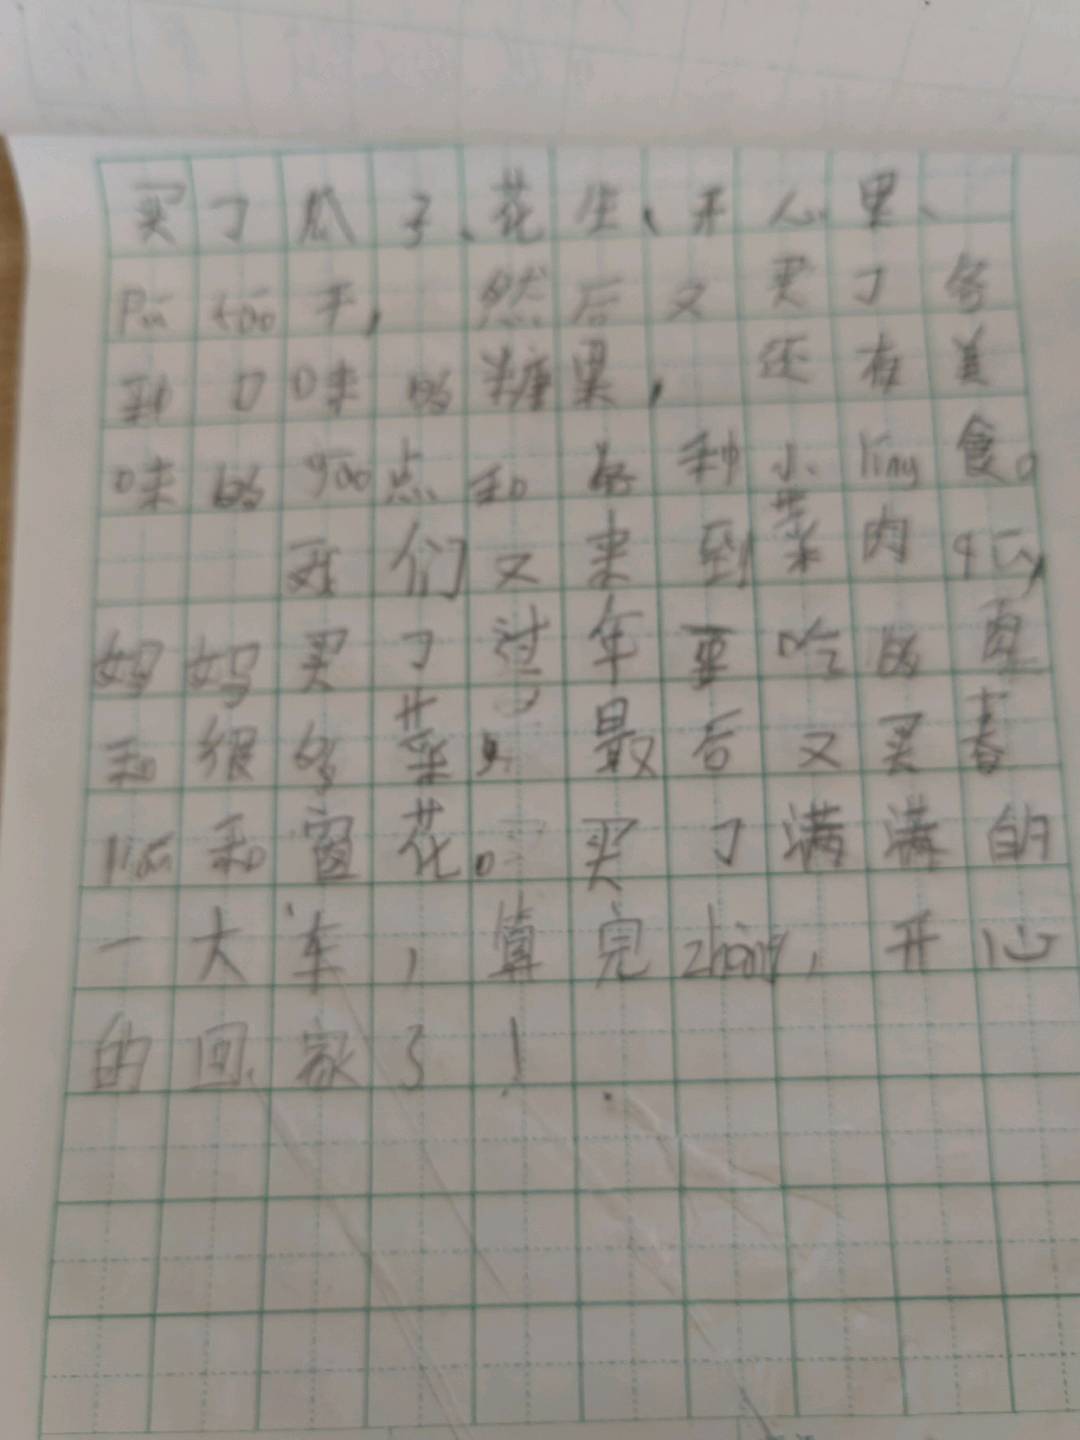 买了瓜子、花生、开心果、
平，然后又买了各
种口味的糖果，还有美
味的gāo点和各种小líng食。
我们又来到菜肉qū，
妈妈买了过年要吃的肉
和很多菜，最后又买春
lián和窗花。买了满满的
一大车，算完zhàng，开心
的回家了！